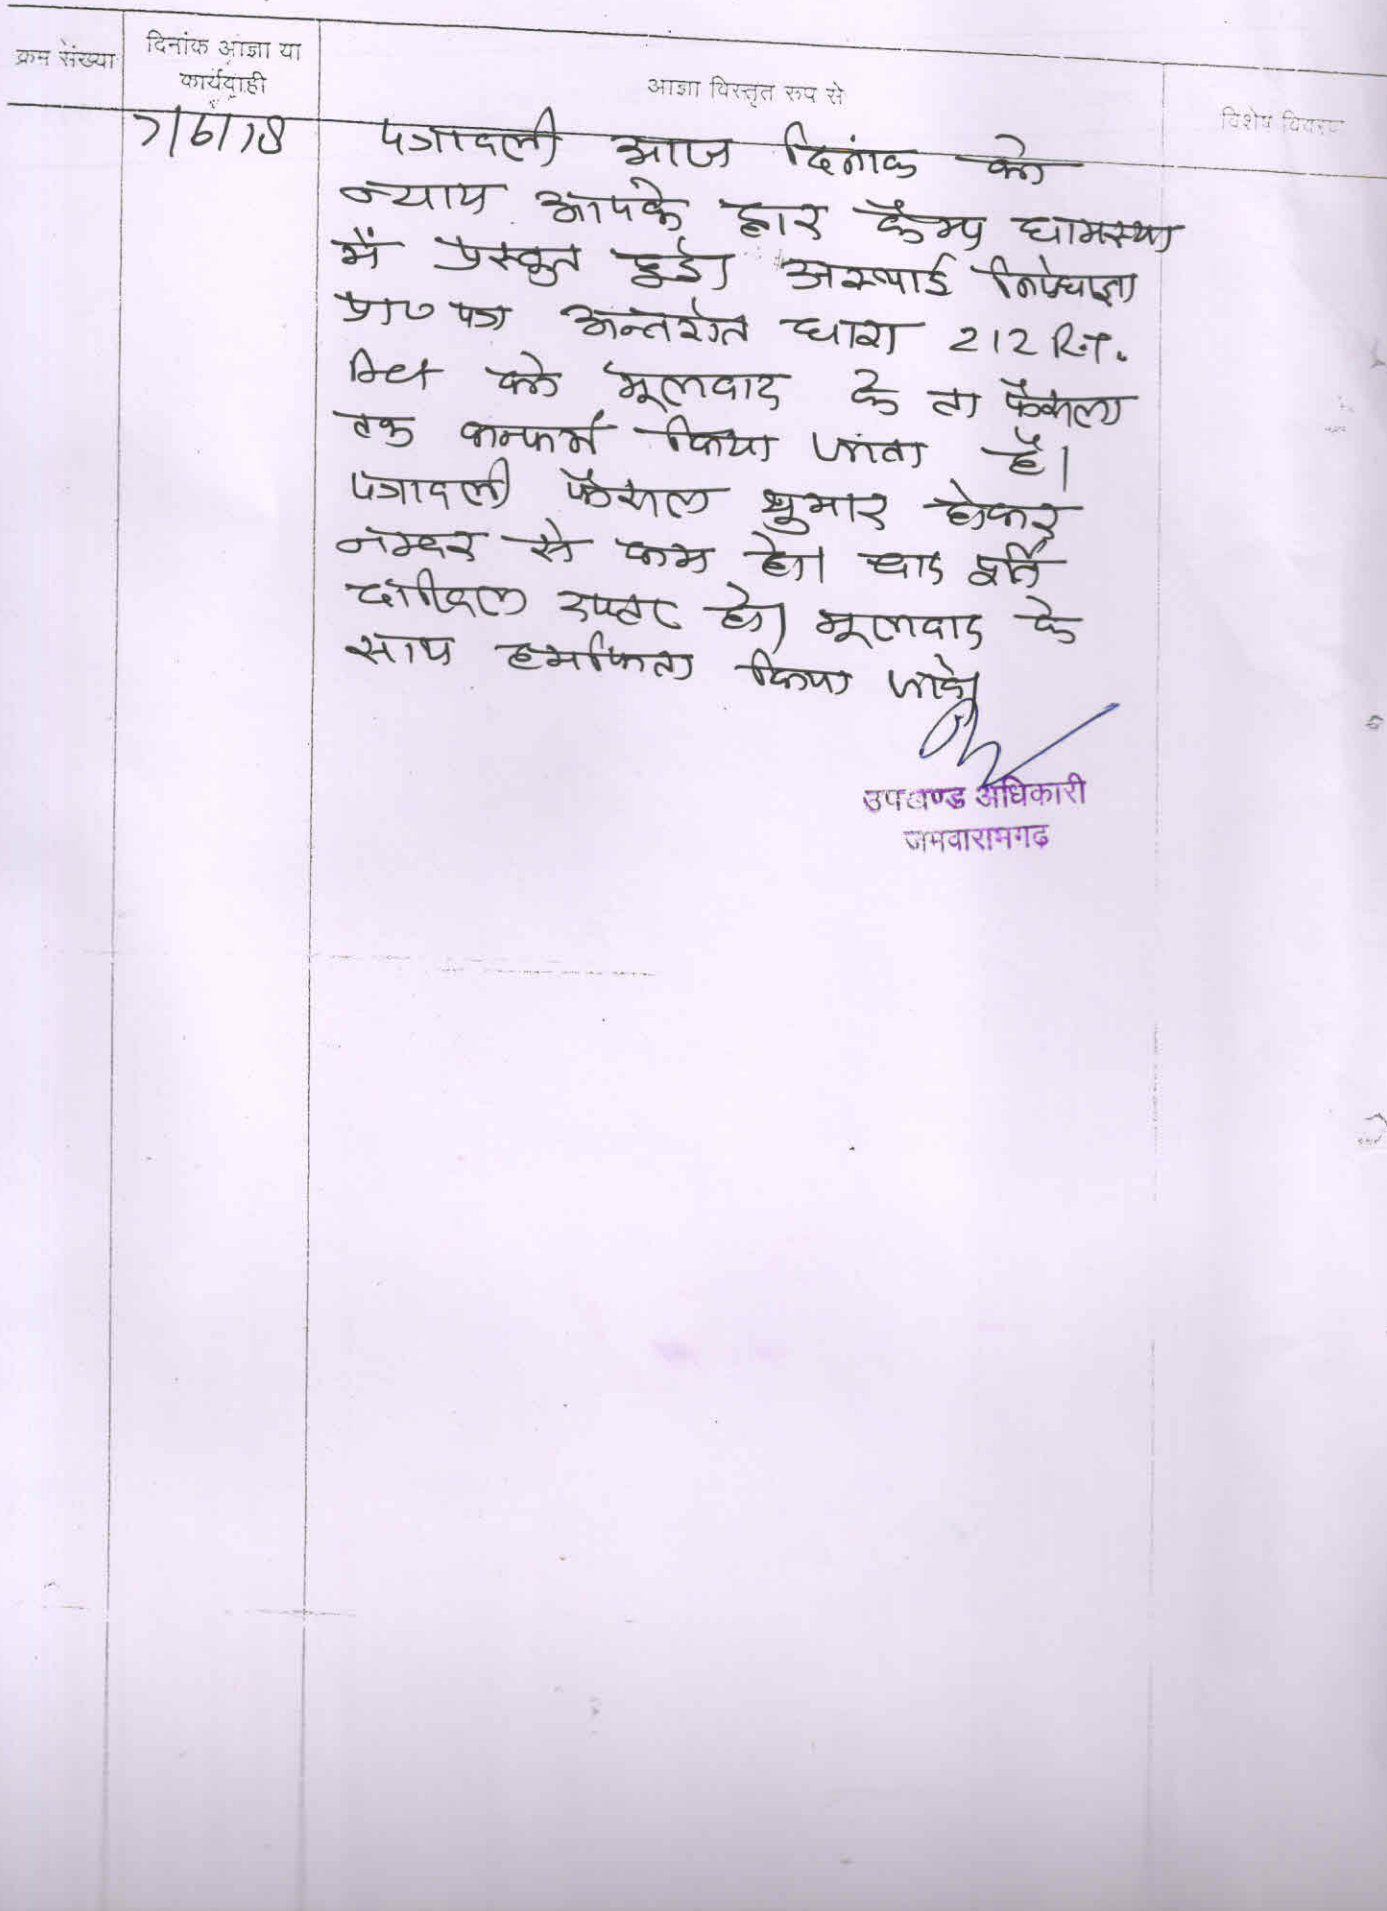 क्रम संख्या
दिनांक आज्ञा या
कार्यवाही
आज्ञा विस्तृत रुप से
विशेष विवरण
7/6/18
पत्रावली आज दिनांक को
न्याय आपके द्वार कैम्प धामस्या
में प्रस्तुत हुई। अस्थाई निषेधाज्ञा
प्रा० पत्र अन्तर्गत धारा 212 R.T.
को मूलवाद के ता फैसला
तक कन्फर्म किया जाता है।
पत्रावली फैसल शुमार होकर
नम्बर से कम हो। बाद पूर्ति
दाखिल दफ्तर हो। मूलवाद के
साथ हमफिता किया जावे।
उपखण्ड अधिकारी
जमवारामगढ